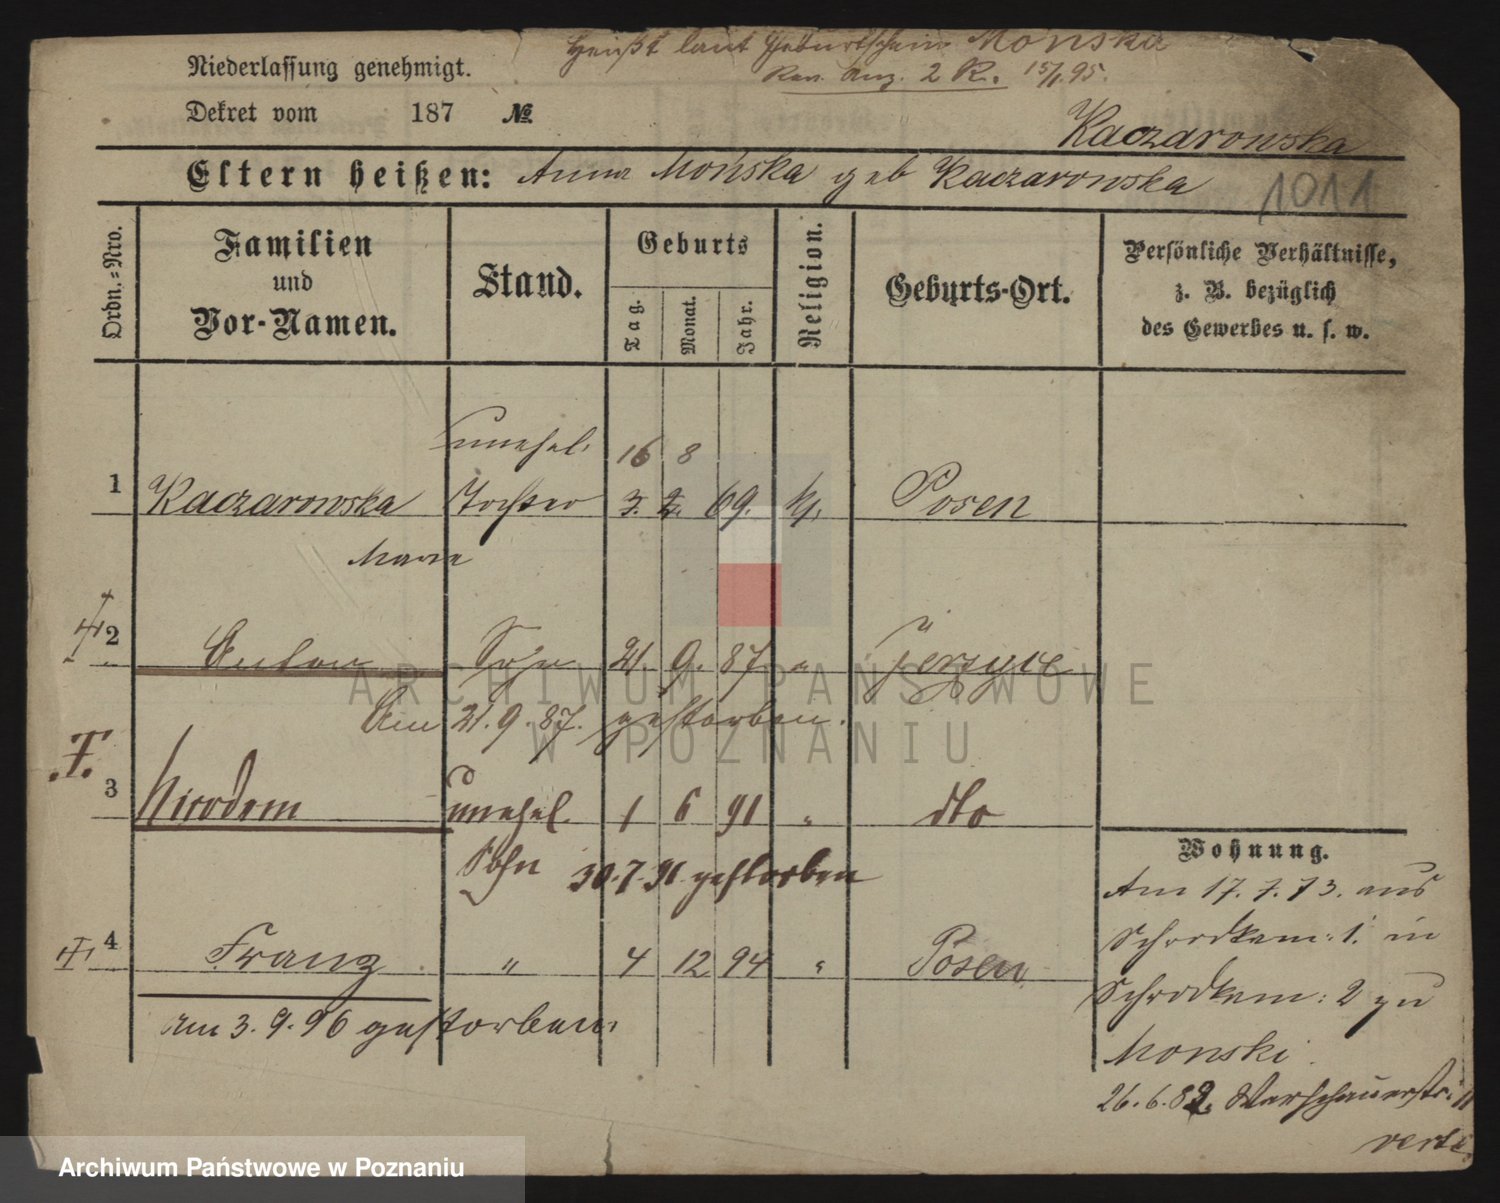 Heißt laut Geburtschein Monska
Niederlassung genehmigt.
Rev. Anz. 2 R. 15/1.95.
Dekret vom 187 №
Kaczarowska
Eltern heißen: Anna Mońska geb Kaczarowska
1011
Ordn.-Nro.
Familien und Vor-Namen.
Stand.
Geburts
Tag.
Monat.
Jahr.
Religion.
Geburts-Ort.
Persönliche Verhältnisse,
z. B. bezüglich
des Gewerbes u. s. w.
unehel. 16 8
1 Kaczarowska Tochter 3. 2. 69. k. Posen
Maria
2 Anton Sohn 21. 9. 87 " Jersyce
Am 21.9.87. gestorben.
3 Nicodem unehel. 1 6 91 " dto
Sohn 30.7.91 gestorben
4 Franz " 4 12 94 " Posen
am 3.9.96 gestorben.
Wohnung.
Am 17.7.73. aus
Schrodkam: 1. in
Schrodkam: 2 zu
Monski.
26.6.82. Warschauerstr. 11
verte
ARCHIWUM PAŃSTWOWE
W POZNANIU
Archiwum Państwowe w Poznaniu